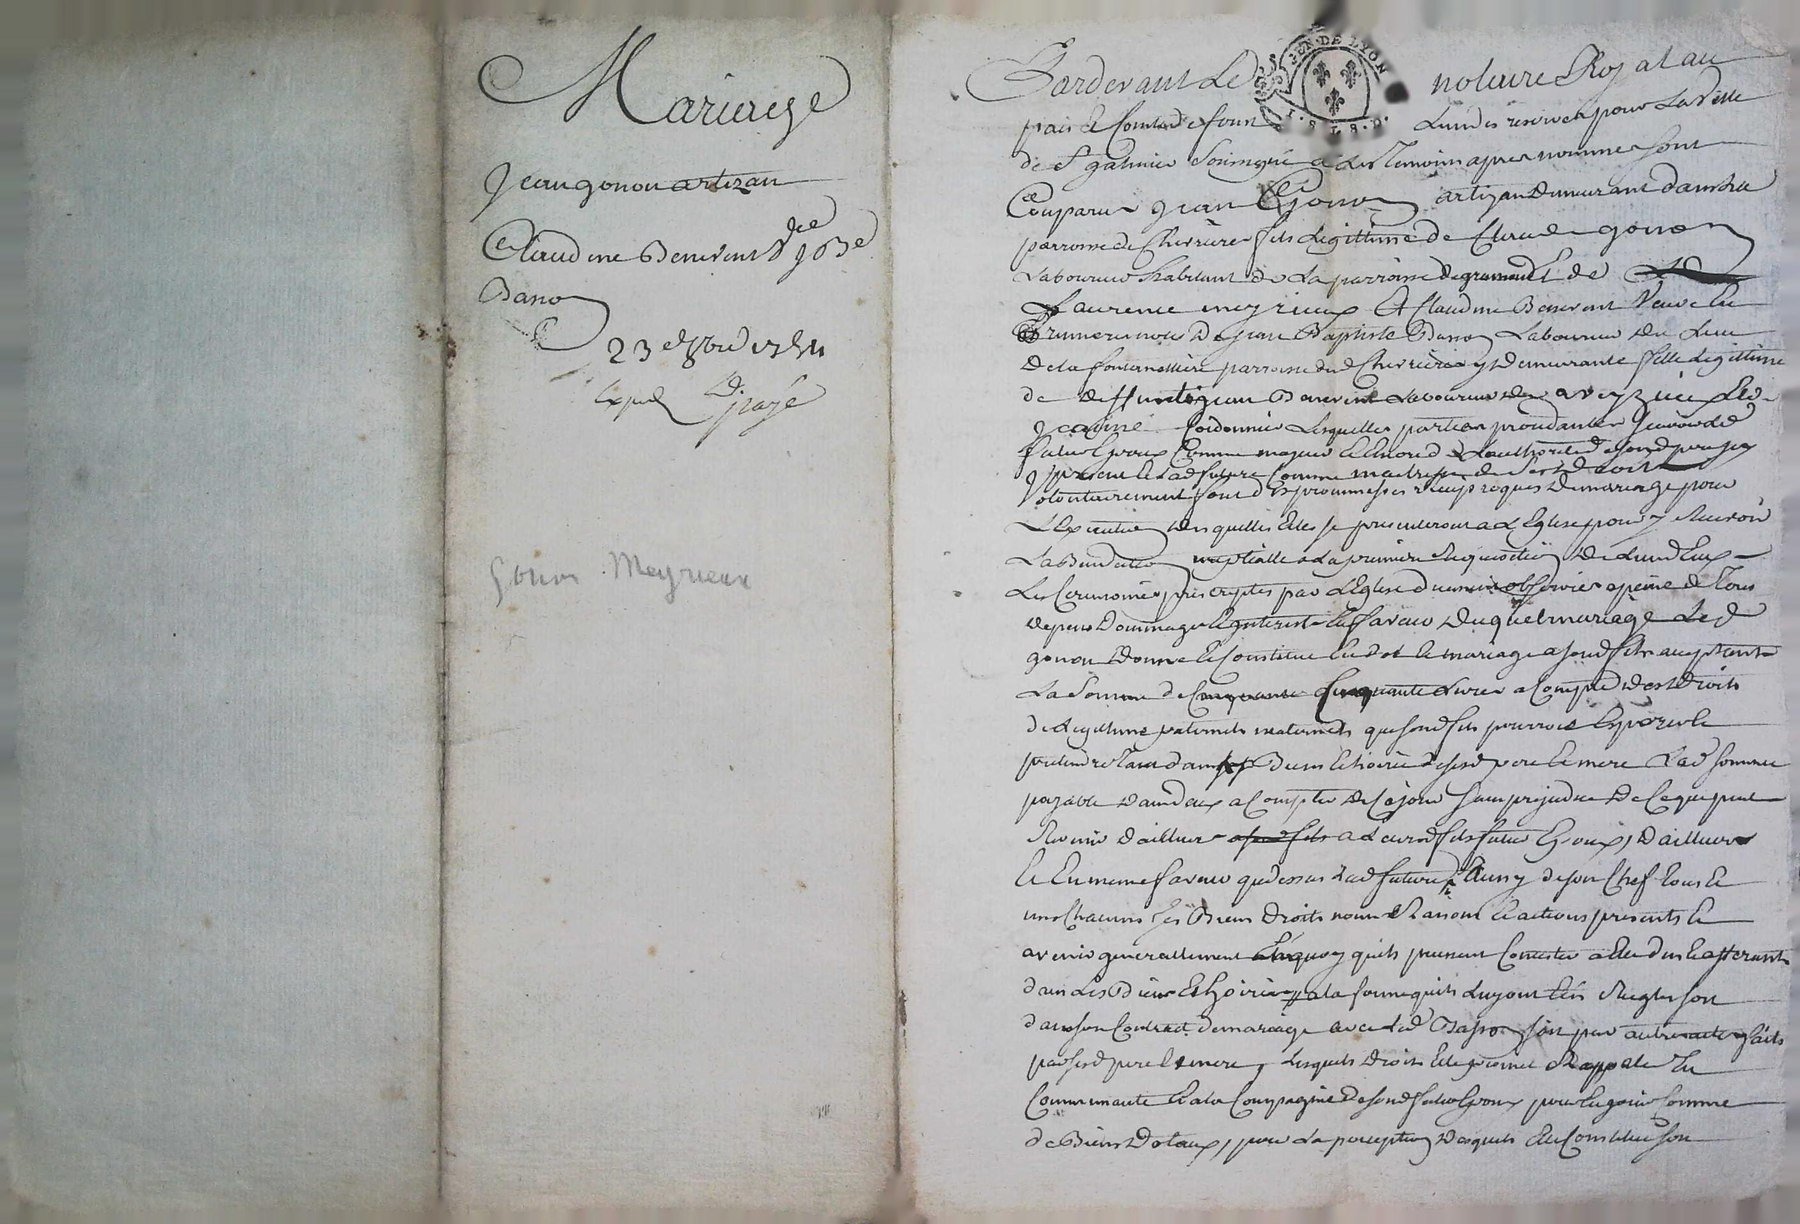 Mariage
Jean gonon artizan
Claudine Benevent Vve J B
Basso
23 8bre
Expédié payé
Gonon Meyrieux
GEN. DE LYON
Pardevant Le notaire Royal au
pais & Comté de forest reservé pour La ville
de St galmier Soussigné & Les Temoins apres nommes sont
Comparus Jean Gonon artizan demeurant dans la
parroisse de Chevrières fils Legittime de Claude gonon
Laboureur habitant de La parroisse de grammond & de
Laurence meyrieux Et Claudine Benevent Veuve En
premieres noces de Jean Baptiste Basso Laboureur du Lieu
de la fontemottière parroisse dud Chevrières y demeurante fille Legittime
de deffunt Jean Benevent Laboureur de aveyzieu Et de
Jeanne Lesquelles parties procedantes sçavoir led
futur Epoux Comme majeur de Lauthorité de sond pere icy
present et lad future Comme maitresse de ses droits
volontairement font Les promesses reciproques de mariage pour
L'Execution desquelles Elles se presenteront a L'Eglise pour y Recevoir
La Benediction nuptialle a La premiere Requisition de Lun d'Eux
Les Ceremonies prescriptes par L'Eglise observées a peine de Tous
depens Dommages & interests En faveur Duquel mariage Led
gonon Donne & Constitue En dot de mariage a sond fils acceptant
La Somme de Cinquante Livres a Compte des Droits
de Legittime paternels maternels que sond fils pourroit Esperer &
pretendre dans Biens & hoirie de sesd pere & mere Lad somme
payable dans deux a Compter de Ce jour Sans prejudice de Ce qui peut
Revenir d'ailleurs a Leurd fils futur Epoux, D'ailleurs
& En meme faveur que dessus Lad future de son Chef Tous &
uns Chacuns Ses Biens Droits noms Raisons & actions presents &
avenir generallement En quoy qu'ils puissent Consister a Elle dus & afferants
dans Les Biens Et hoirie a la forme qu'ils Luy ont Eté Reglés soit
dans son Contract de mariage avec Led Basso soit par autre acte faits
par sesd pere & mere, Lesquels Droits Elle promet Rapporter En
Communauté & a la Compagnie de sond futur Epoux pour En jouir Comme
de Biens Dotaux, pour La perception desquels Elle Constitue son